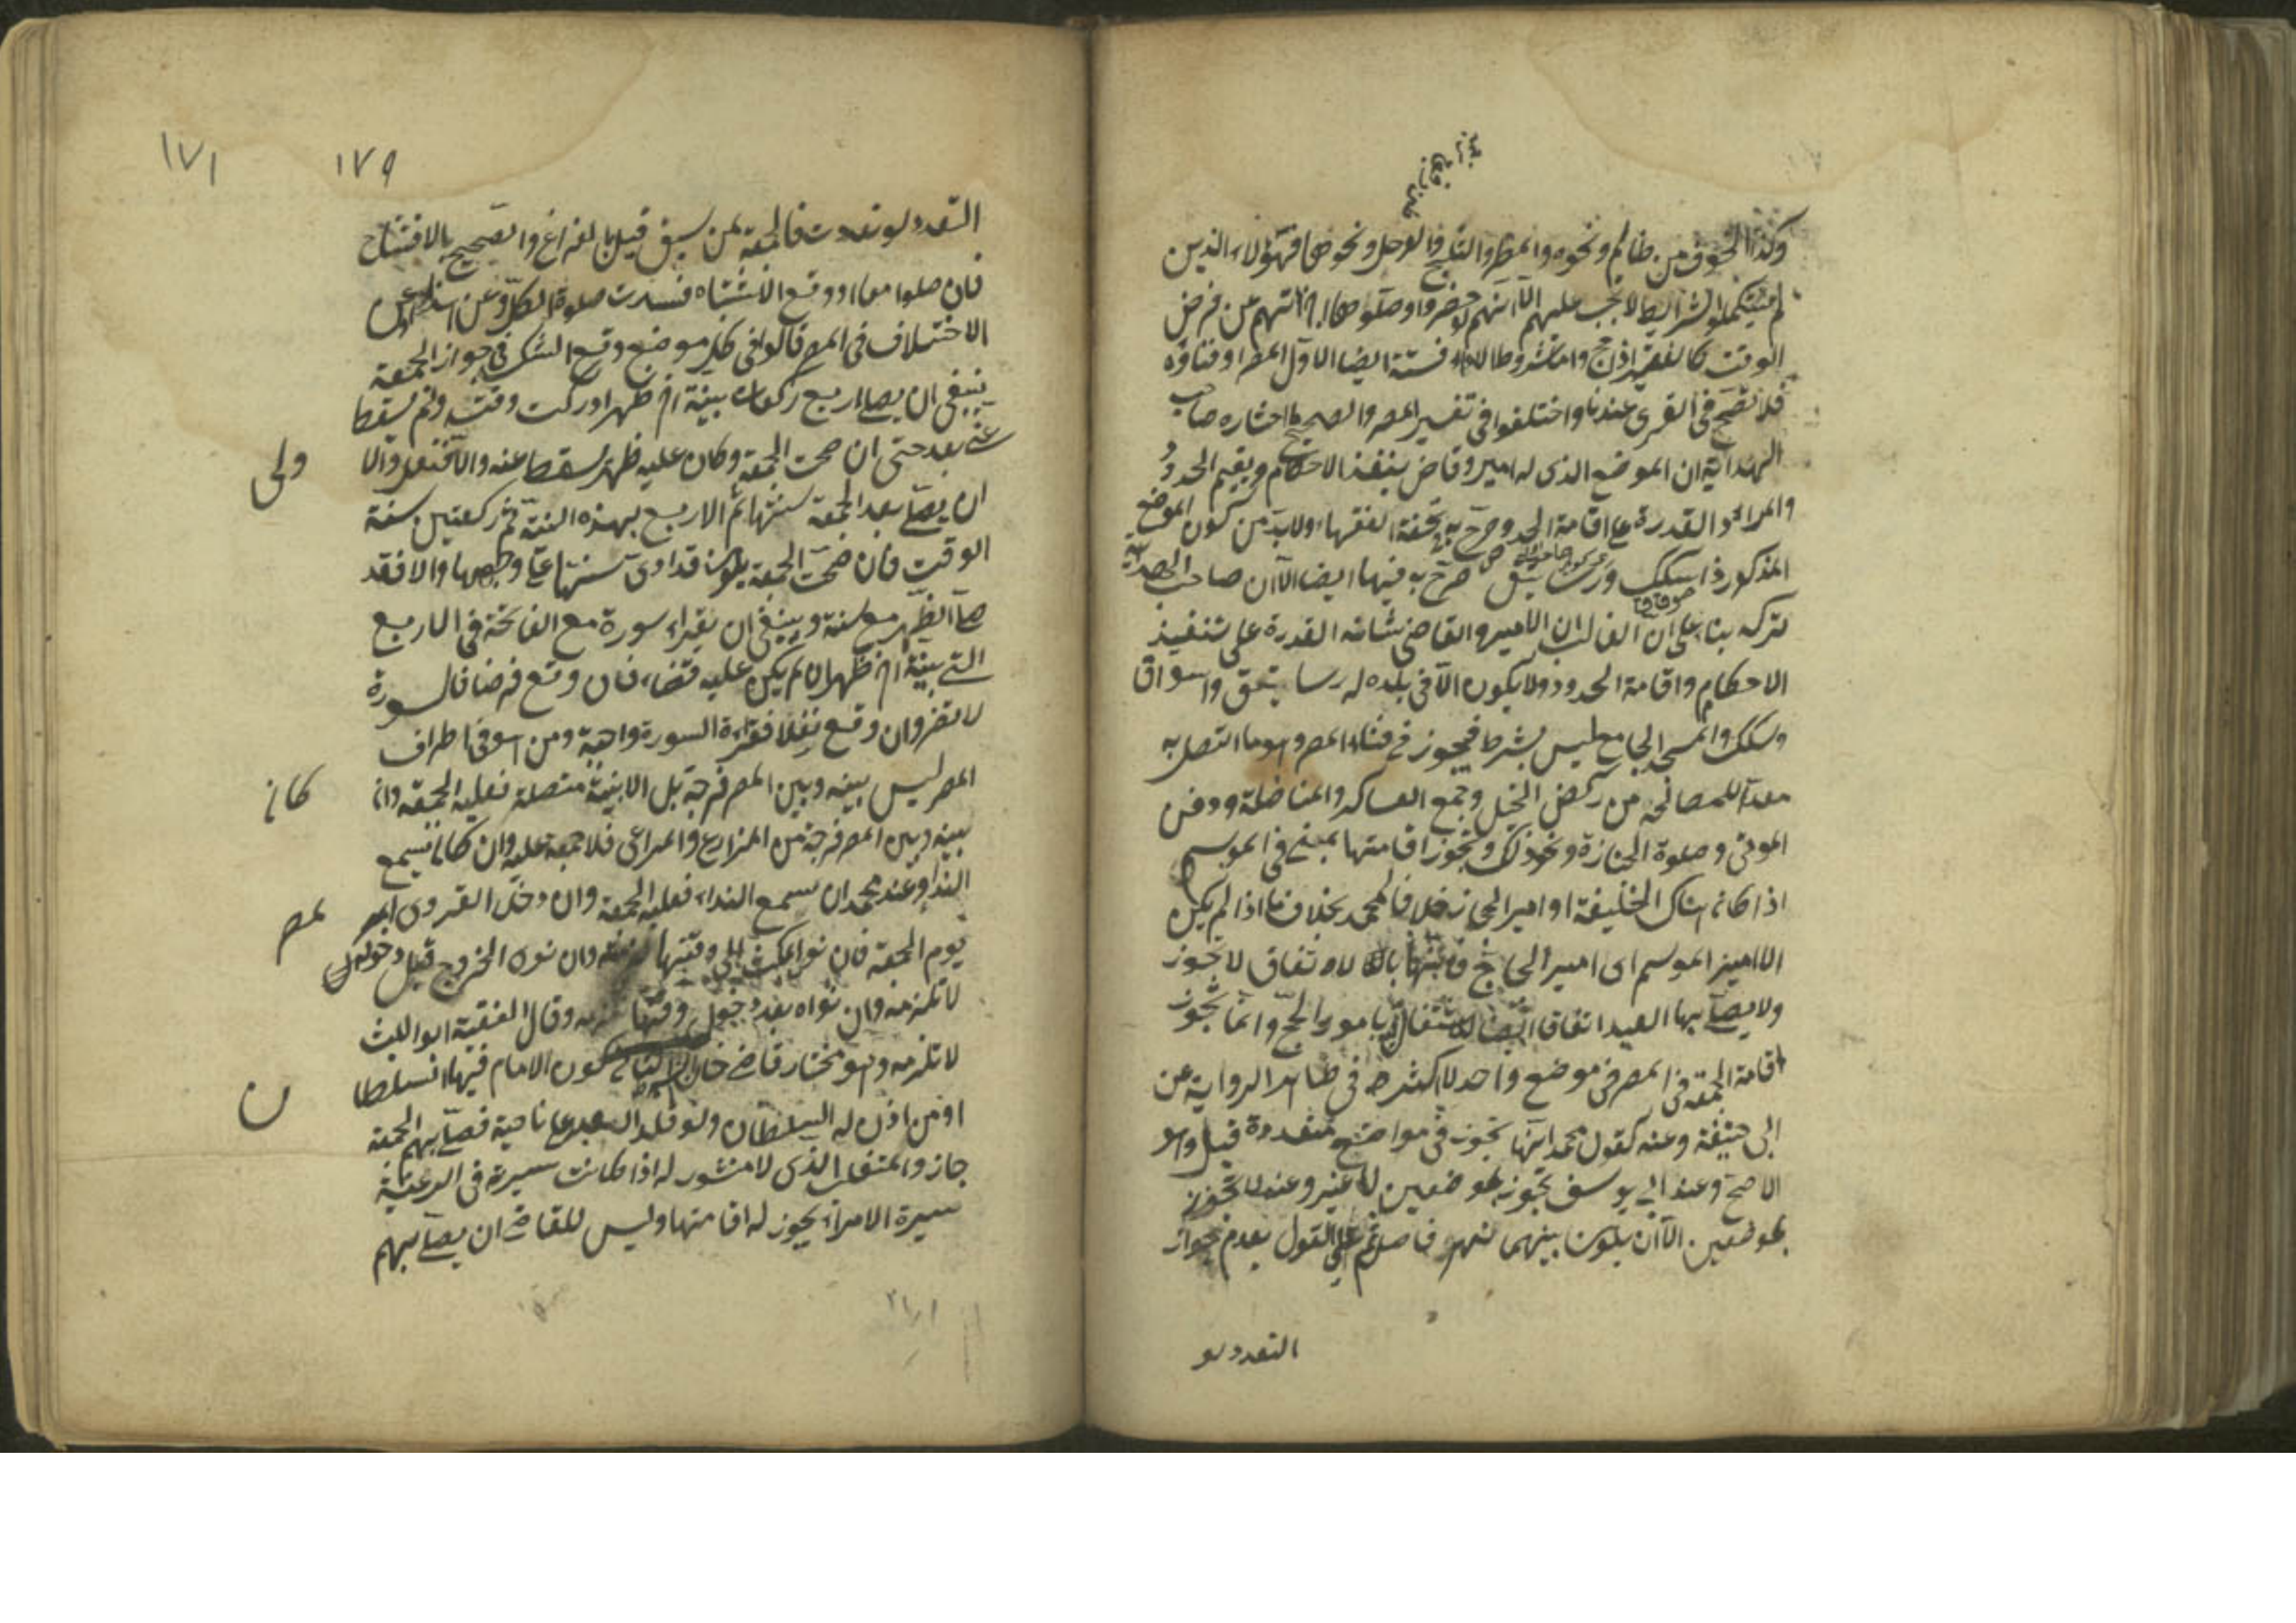 وكذا الخوف من ظالم ونحوه والمطر والثلج والوحل ونحوها فهؤلاء الذين
لم يستكملوا الشرائط لا تجب عليهم الا انهم لو حضروا وصلوها اجزأتهم عن فرض
الوقت كالفقير اذا حج واما شروط الاداء فستة ايضا الاول المصر او فناؤه
فلا تصح في القرى عندنا واختلفوا في تفسير المصر والصحيح ما اختاره صاحب
الهداية ان الموضع الذى له امير وقاض ينفذ الاحكام ويقيم الحدود
والمراد القدرة على اقامة الحدود صرح به في تحفة الفقهاء ولا بد من كون الموضع
المذكور ذا سكك ورساتيق صرح به فيها ايضا الا ان صاحب الهداية
تركه بناء على ان الغالب ان الامير والقاضى شانه القدرة على تنفيذ
الاحكام واقامة الحدود ولا يكون الا في بلدة له رساتيق واسواق
وسكك والمسجد الجامع ليس بشرط فيجوز في فناء المصر وهو ما اتصل به
معدا لمصالحه من ركض الخيل وجمع العساكر والمناضلة ودفن
الموتى وصلوة الجنازة ونحو ذلك وتجوز اقامتها بمنى في الموسم
اذا كان هناك الخليفة او امير الحجاز خلافا لمحمد بخلاف ما اذا لم يكن
الا امير الموسم اى امير الحاج فانها بالاتفاق لا تجوز
ولا يصلى بها العيد اتفاقا للاشتغال بامور الحج وانما تجوز
اقامة الجمعة في المصر في موضع واحد لا اكثر في ظاهر الرواية عن
ابى حنيفة وعنه كقول محمد انها تجوز في مواضع متعددة قيل وهو
الاصح وعند ابى يوسف تجوز بموضعين لا غير وعنه لا تجوز
بموضعين الا ان يكون بينهما نهر فاصل ثم على القول بعدم جواز
التعدد لو
١٧٩
١٧١
التعدد لو تعددت فالجمعة لمن سبق قيل بالفراغ والصحيح بالافتتاح
فان صلوا معا او وقع الاشتباه فسدت صلوة الكل وعن
الاختلاف في المصر قالوا في كل موضع وقع الشك في جواز الجمعة
ينبغى ان يصلى اربع ركعات بنية اخر ظهر ادركت وقته ولم يسقط
عنى بعد حتى ان صحت الجمعة وكان عليه ظهر يسقط عنه والا فنفل والاولى
ان يصلى بعد الجمعة سنتها ثم الاربع بهذه النية ثم ركعتين سنة
الوقت فان صحت الجمعة يكون قد ادى سنتها على وجهها والا فقد
صلى الظهر مع سنته وينبغى ان يقرأ سورة مع الفاتحة في الاربع
التى بنية اخر ظهر ان لم يكن عليه قضاء فان وقع فرضا فالسورة
لا تضر وان وقع نفلا فقراءة السورة واجبة ومن هو في اطراف
المصر ليس بينه وبين المصر فرجة بل الابنية متصلة فعليه الجمعة وان كان
بينه وبين المصر فرجة من المزارع والمراعى فلا جمعة عليه وان كان يسمع
النداء وعند محمد ان سمع النداء فعليه الجمعة وان دخل القروى المصر
يوم الجمعة فان نوى المكث الى وقتها لزمته وان نوى الخروج قبل دخوله
لا تلزمه وان نواه بعد دخول وقتها تلزمه وقال الفقيه ابو الليث
لا تلزمه وهو مختار قاضى خان الشرط الثانى كون الامام فيها السلطان
او من اذن له السلطان ولو قلد العبد على ناحية فصلى بهم الجمعة
جاز والمتغلب الذى لا منشور له اذا كانت سيرته في الرعية
سيرة الامراء يجوز له اقامتها وليس للقاضى ان يصلى بهم